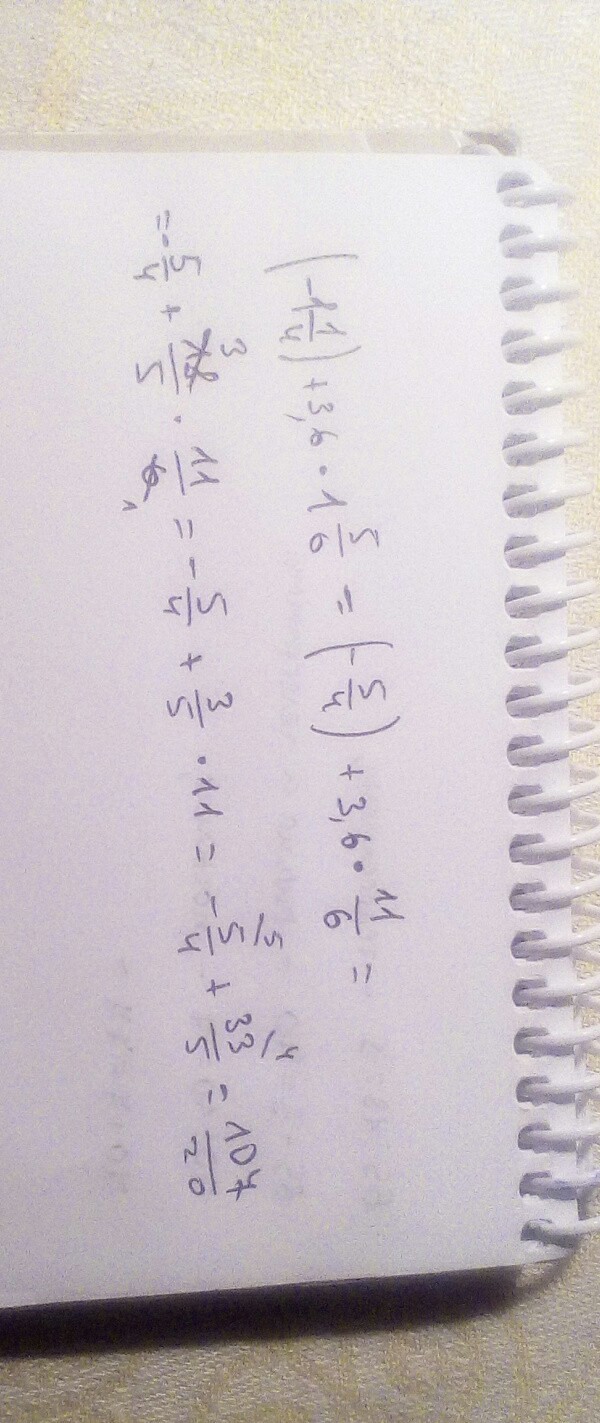 (-1 1/4) + 3,6 · 1 5/6 = (-5/4) + 3,6 · 11/6 =
= -5/4 + 18/5 3 · 11/6 1 = -5/4 + 3/5 · 11 = -5/4 \5 + 33/5 \4 = 107/20